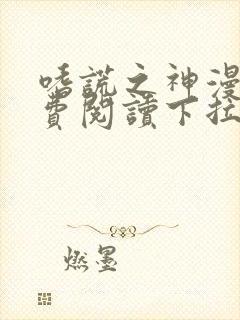 嗜謊之神漫
費閱讀下拉
燃墨